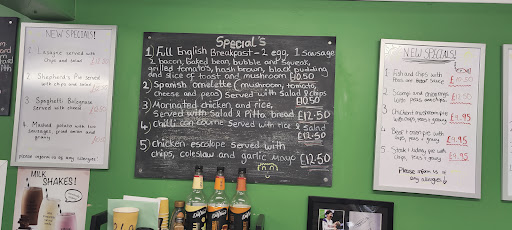 NEW SPECIALS!
1. Lasagne served with
Chips and salad
2. Shepherd's Pie served
with chips and salad
3. Spaghetti Bolognese
served with
4. Mashed potato with two
sausages, fried onion and
gravy
please inform us of any allergies
MILK
SHAKES!
Special's
1) Full English Breakfast - 2 egg, 1 sausage
2 bacon, Baked bean, bubble and squeak,
grilled tomato's, hash brown, black pudding
and slice of toast and mushroom £10.50
2) Spanish omelette (mushroom, tomato,
cheese and peas) Served with Salad & chips
£10.50
3) Marinated chicken and rice,
Served with Salad & Pitta bread £12.50
4) Chilli con carne Served with rice & salad
£12.50
5) Chicken escalope Served with
chips, coleslaw and garlic mayo £12.50
NEW SPECIALS!
1. Fish and chips with
Peas and tartar sauce
2. Scampi and chips
with peas
3.
with chips, peas & gravy £9.95
4. Beef pie
chips, peas & gravy £9.95
5. Steak & kidney pie with
chips, peas & gravy £9.95
Please inform us of
any allergies